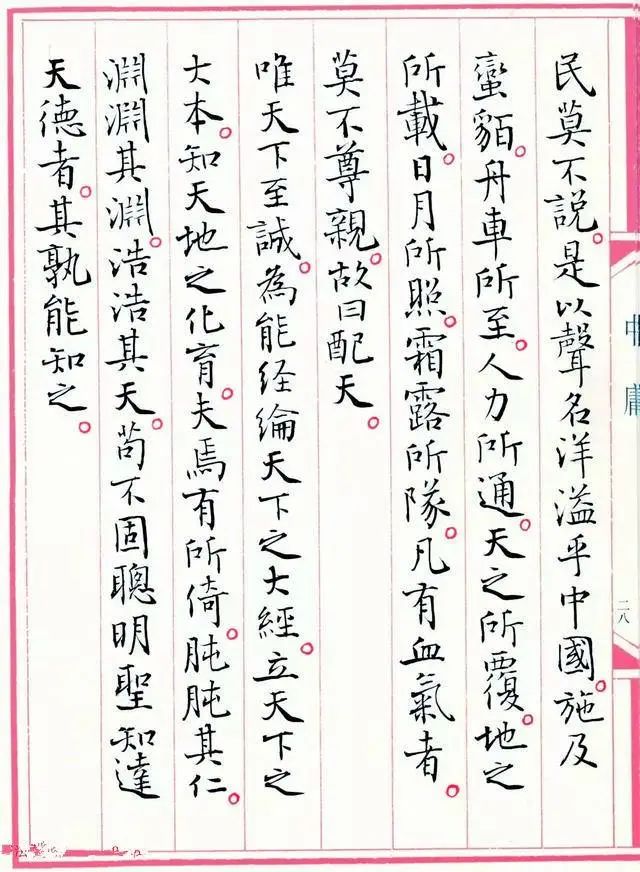 民莫不說。是以聲名洋溢乎中國。施及
蠻貊。舟車所至。人力所通。天之所覆。地之
所載。日月所照。霜露所隊。凡有血氣者。
莫不尊親。故曰配天。
唯天下至誠。為能経綸天下之大經。立天下之
大本。知天地之化育。夫焉有所倚。肫肫其仁。
淵淵其淵。浩浩其天。苟不固聰明聖知達
天德者。其孰能知之。
中庸
二八